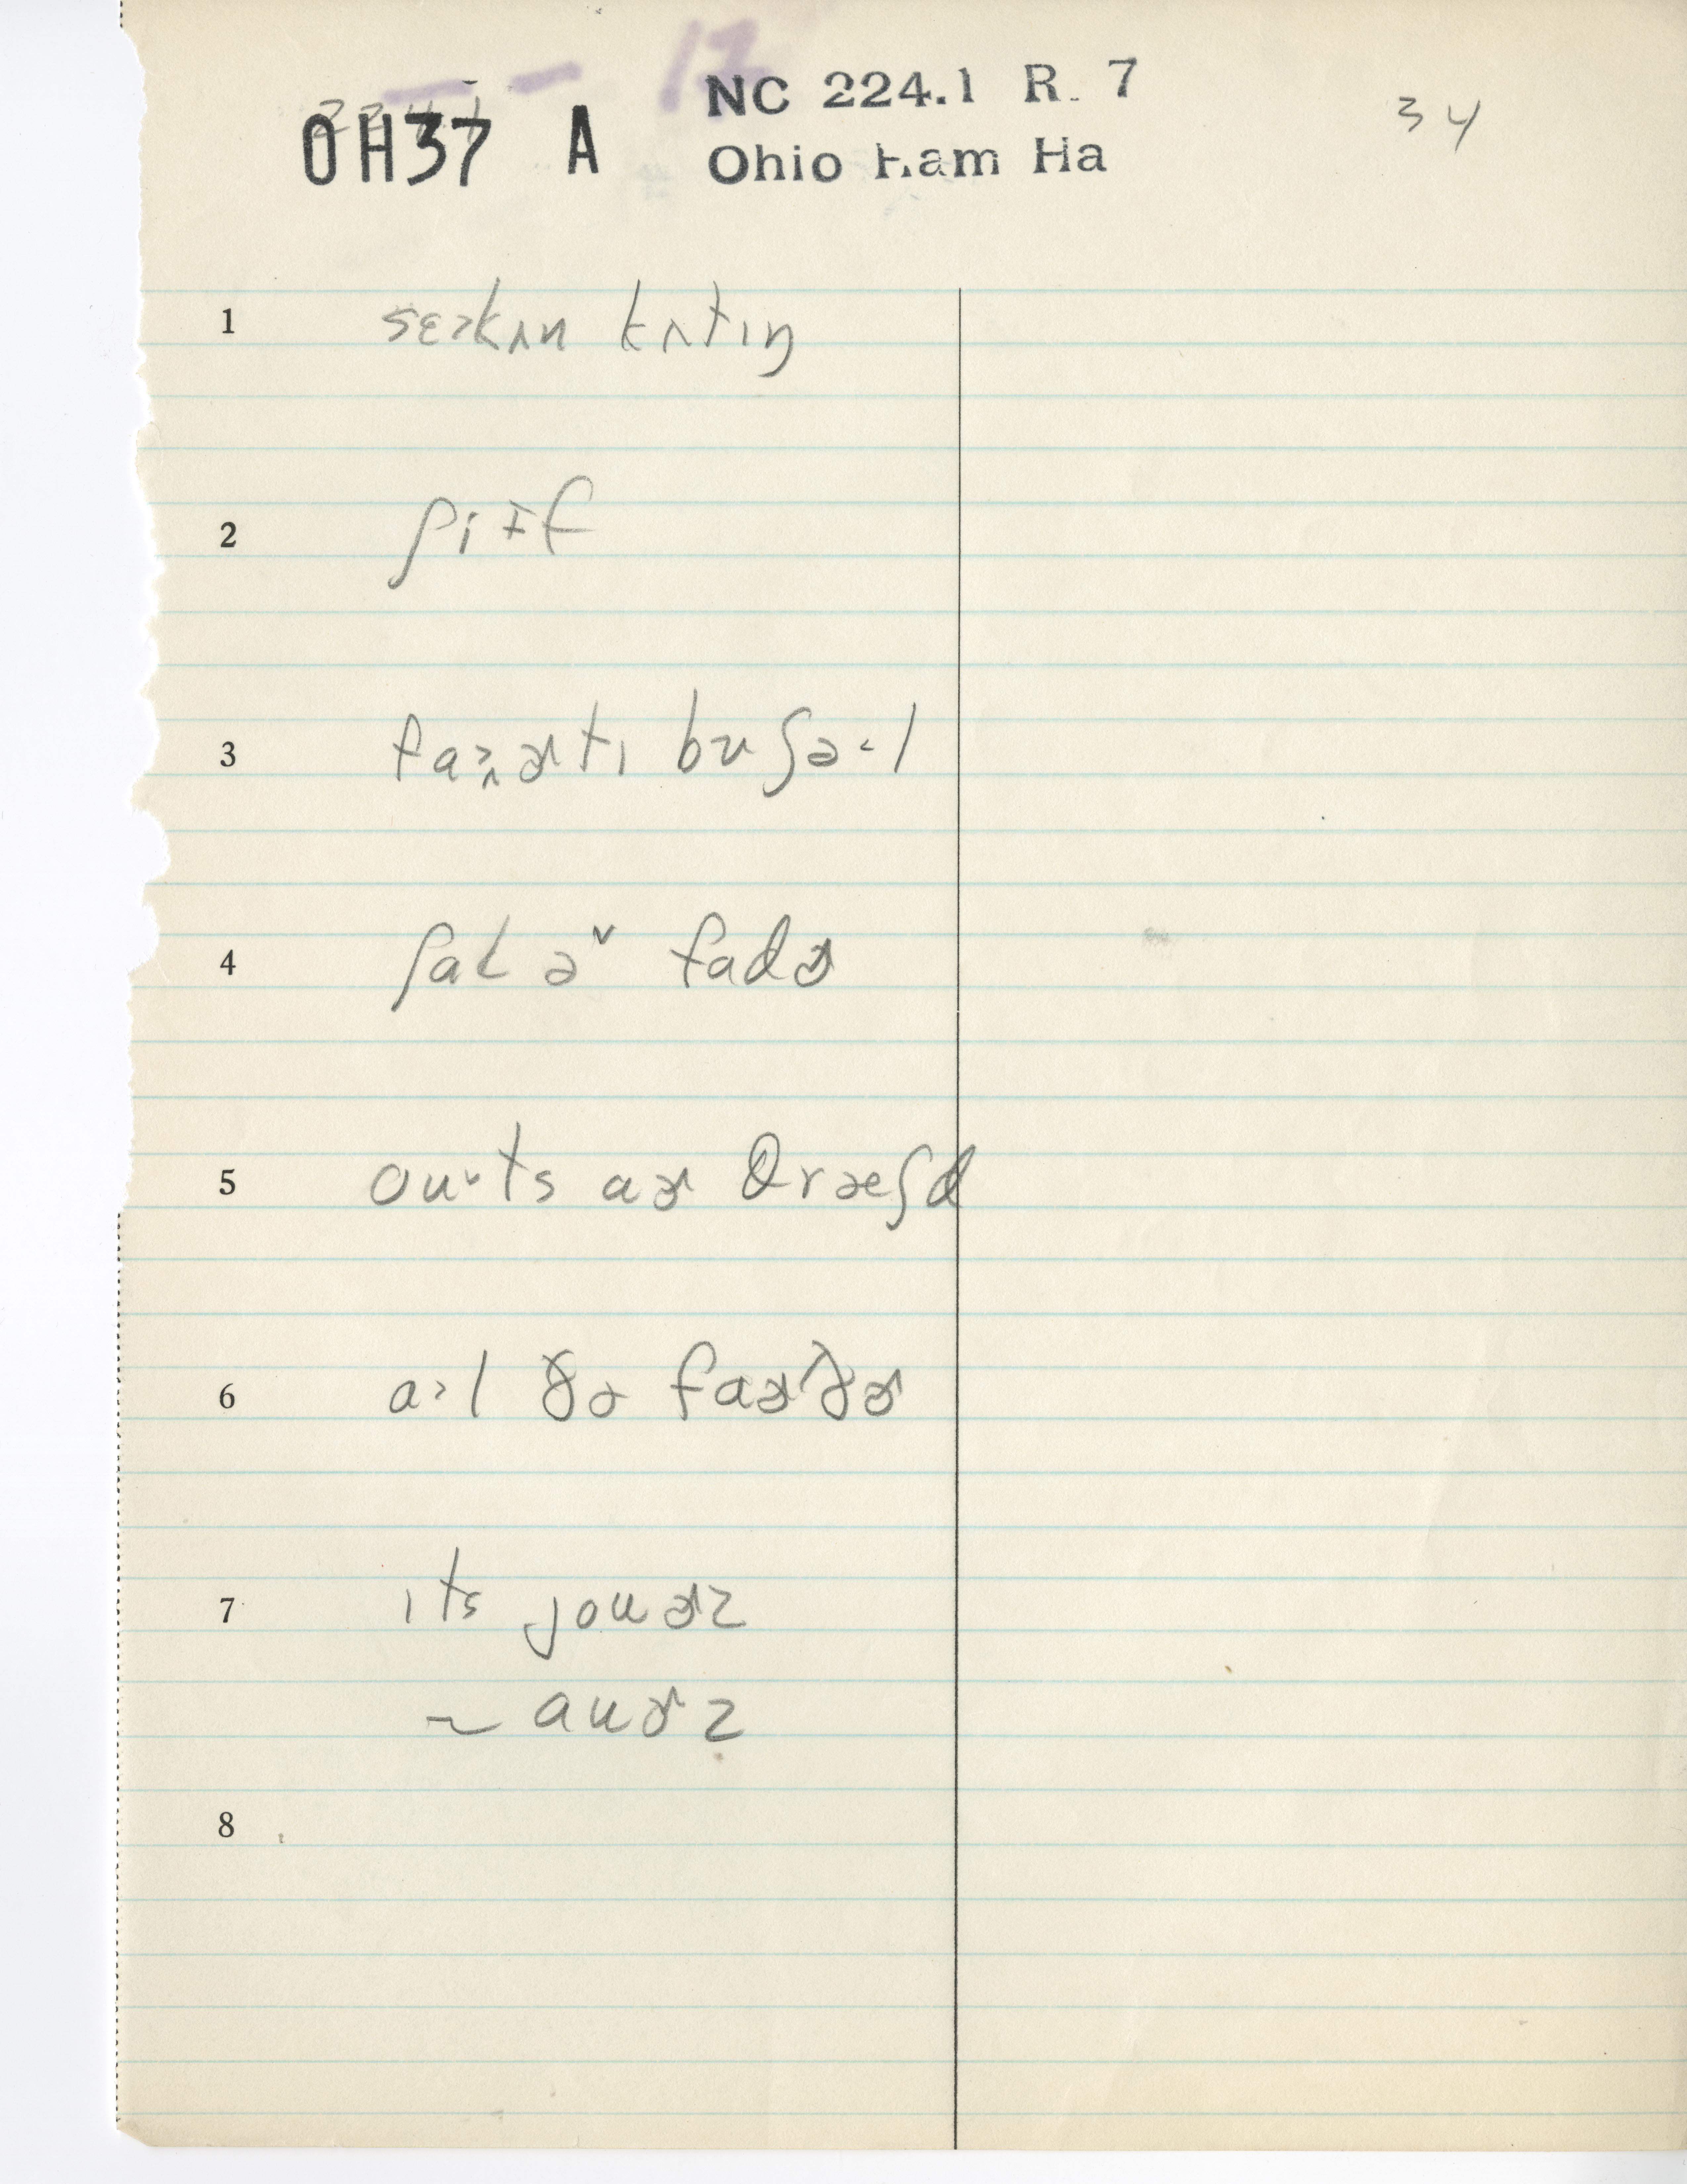 12
OH37 A
NC 224.1 R. 7
Ohio Ham Ha
34
1 sɛ>kʌn kʌtɪŋ
2 ʃiɪf
3 fa>ɚtɪ buʃəl
4 ʃak əᵛ fadɚ
5 outs aɚ θræʃd
6 a>l ðə faɚðɚ
7 ɪts jouɚz
~ auɚz
8